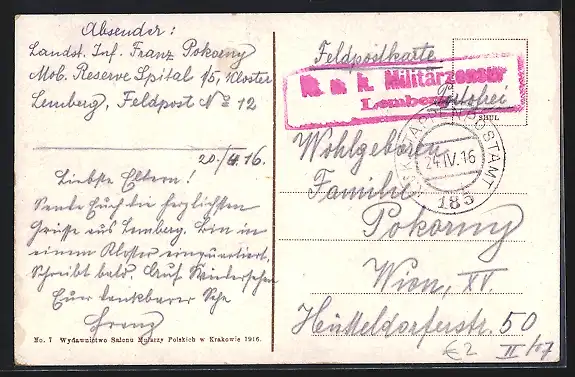 Absender:
Landst. Inf. Franz Pokorny
Mob. Reserve Spital 1/5, Kloster
Lemberg, Feldpost No 12
20./4.16.
Liebste Eltern!
Sende Euch die herzlichsten
Grüsse aus Lemberg. Bin in
einem Kloster einquartiert.
Schreibt bald. Auf Wiedersehen
Euer dankbarer Sohn
Franz
No. 7 Wydawnictwo Salonu Malarzy Polskich w Krakowie 1916.
Feldpostkarte
K. u. k. Militärzensur
Lemberg
Portofrei
K.u.K. ETAPPENPOSTAMT
24.IV.16
185
Wohlgeboren
Familie
Pokorny
Wien, XV.
Hütteldorferstr. 50
€2
II/07